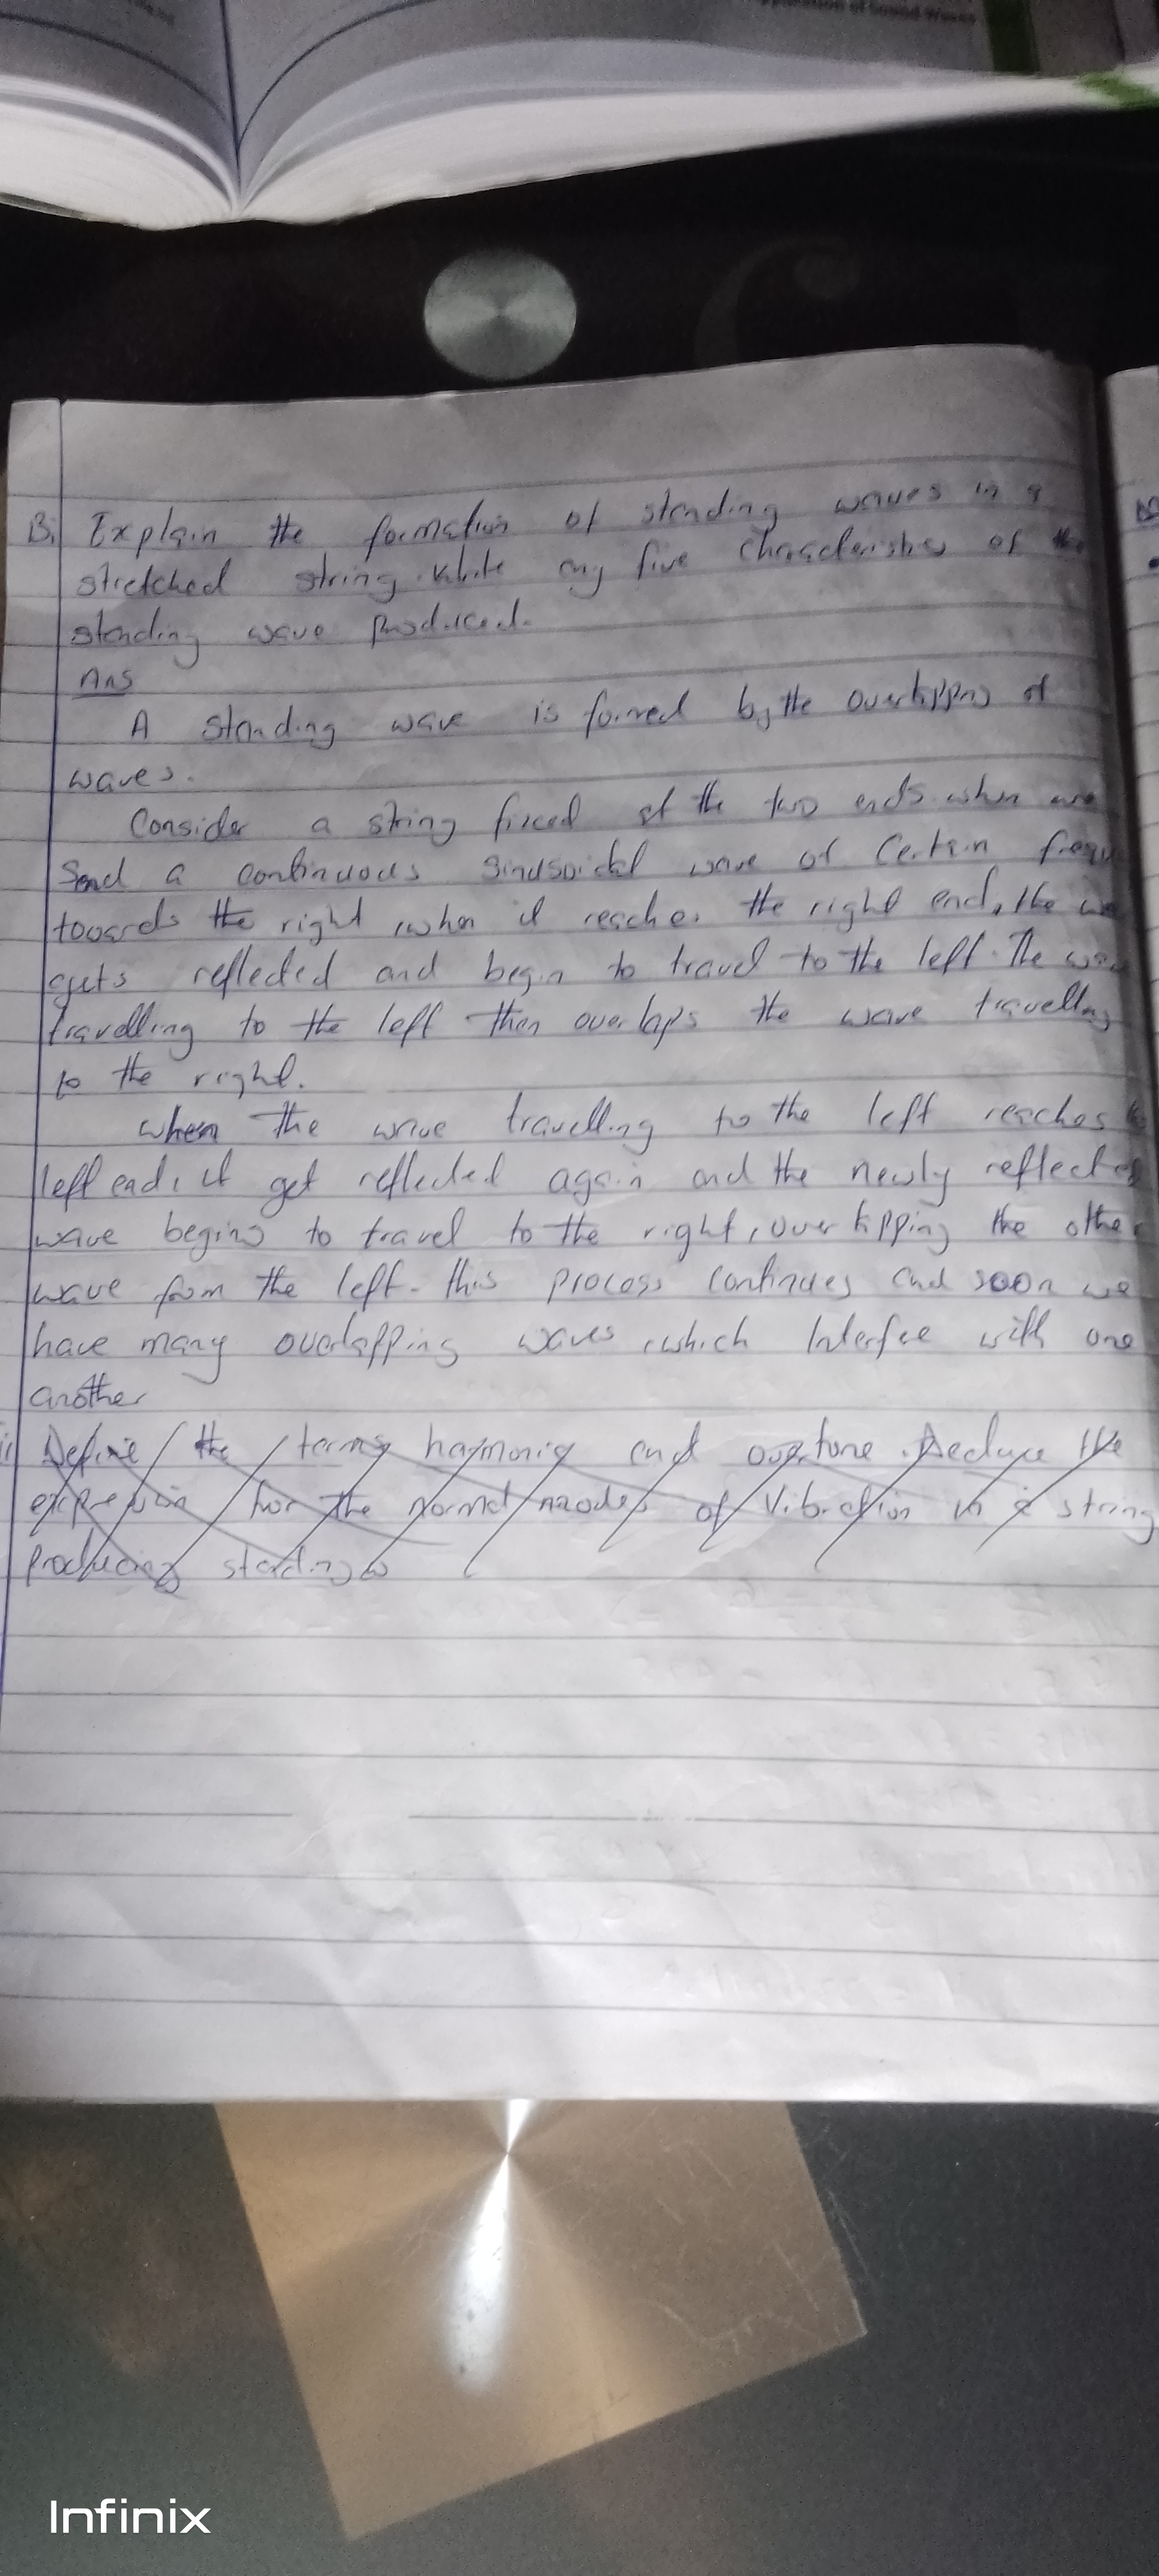 Application of Sound Waves
B. Explain the formation of standing waves in a
stretched string. Write any five characteristics of the
standing wave produced.
Ans
A standing wave is formed by the overlapping of
waves.
Consider a string fixed at the two ends. when we
Send a continuous sinusoidal wave of Certain frequ
towards the right, when it reaches the right end, the
gets reflected and begin to travel to the left. The
travelling to the left then overlaps the wave travelling
to the right.
when the wave travelling to the left reaches
left end, it get reflected again and the newly reflected
wave begins to travel to the right, overlapping the other
wave from the left. this process continues and soon we
have many overlapping waves, which Interfee with one
another
Define the terms harmonic and overtone. Deduce the
expression for the normal modes of Vibration in a string
producing standing w
Infinix